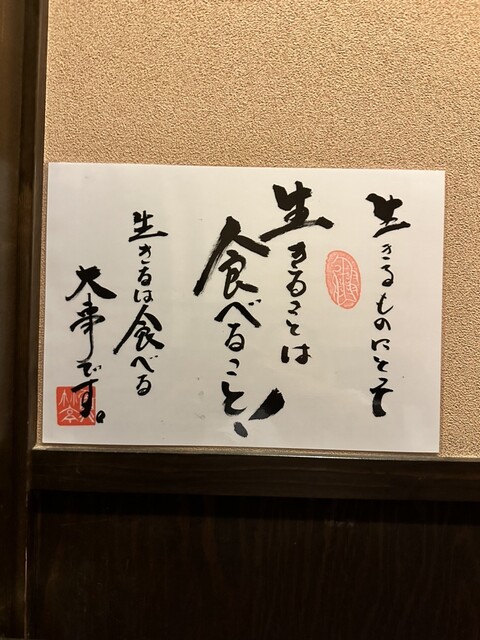 生きるものにとって
生きることは
食べること!
生きるは食べる
大事です。